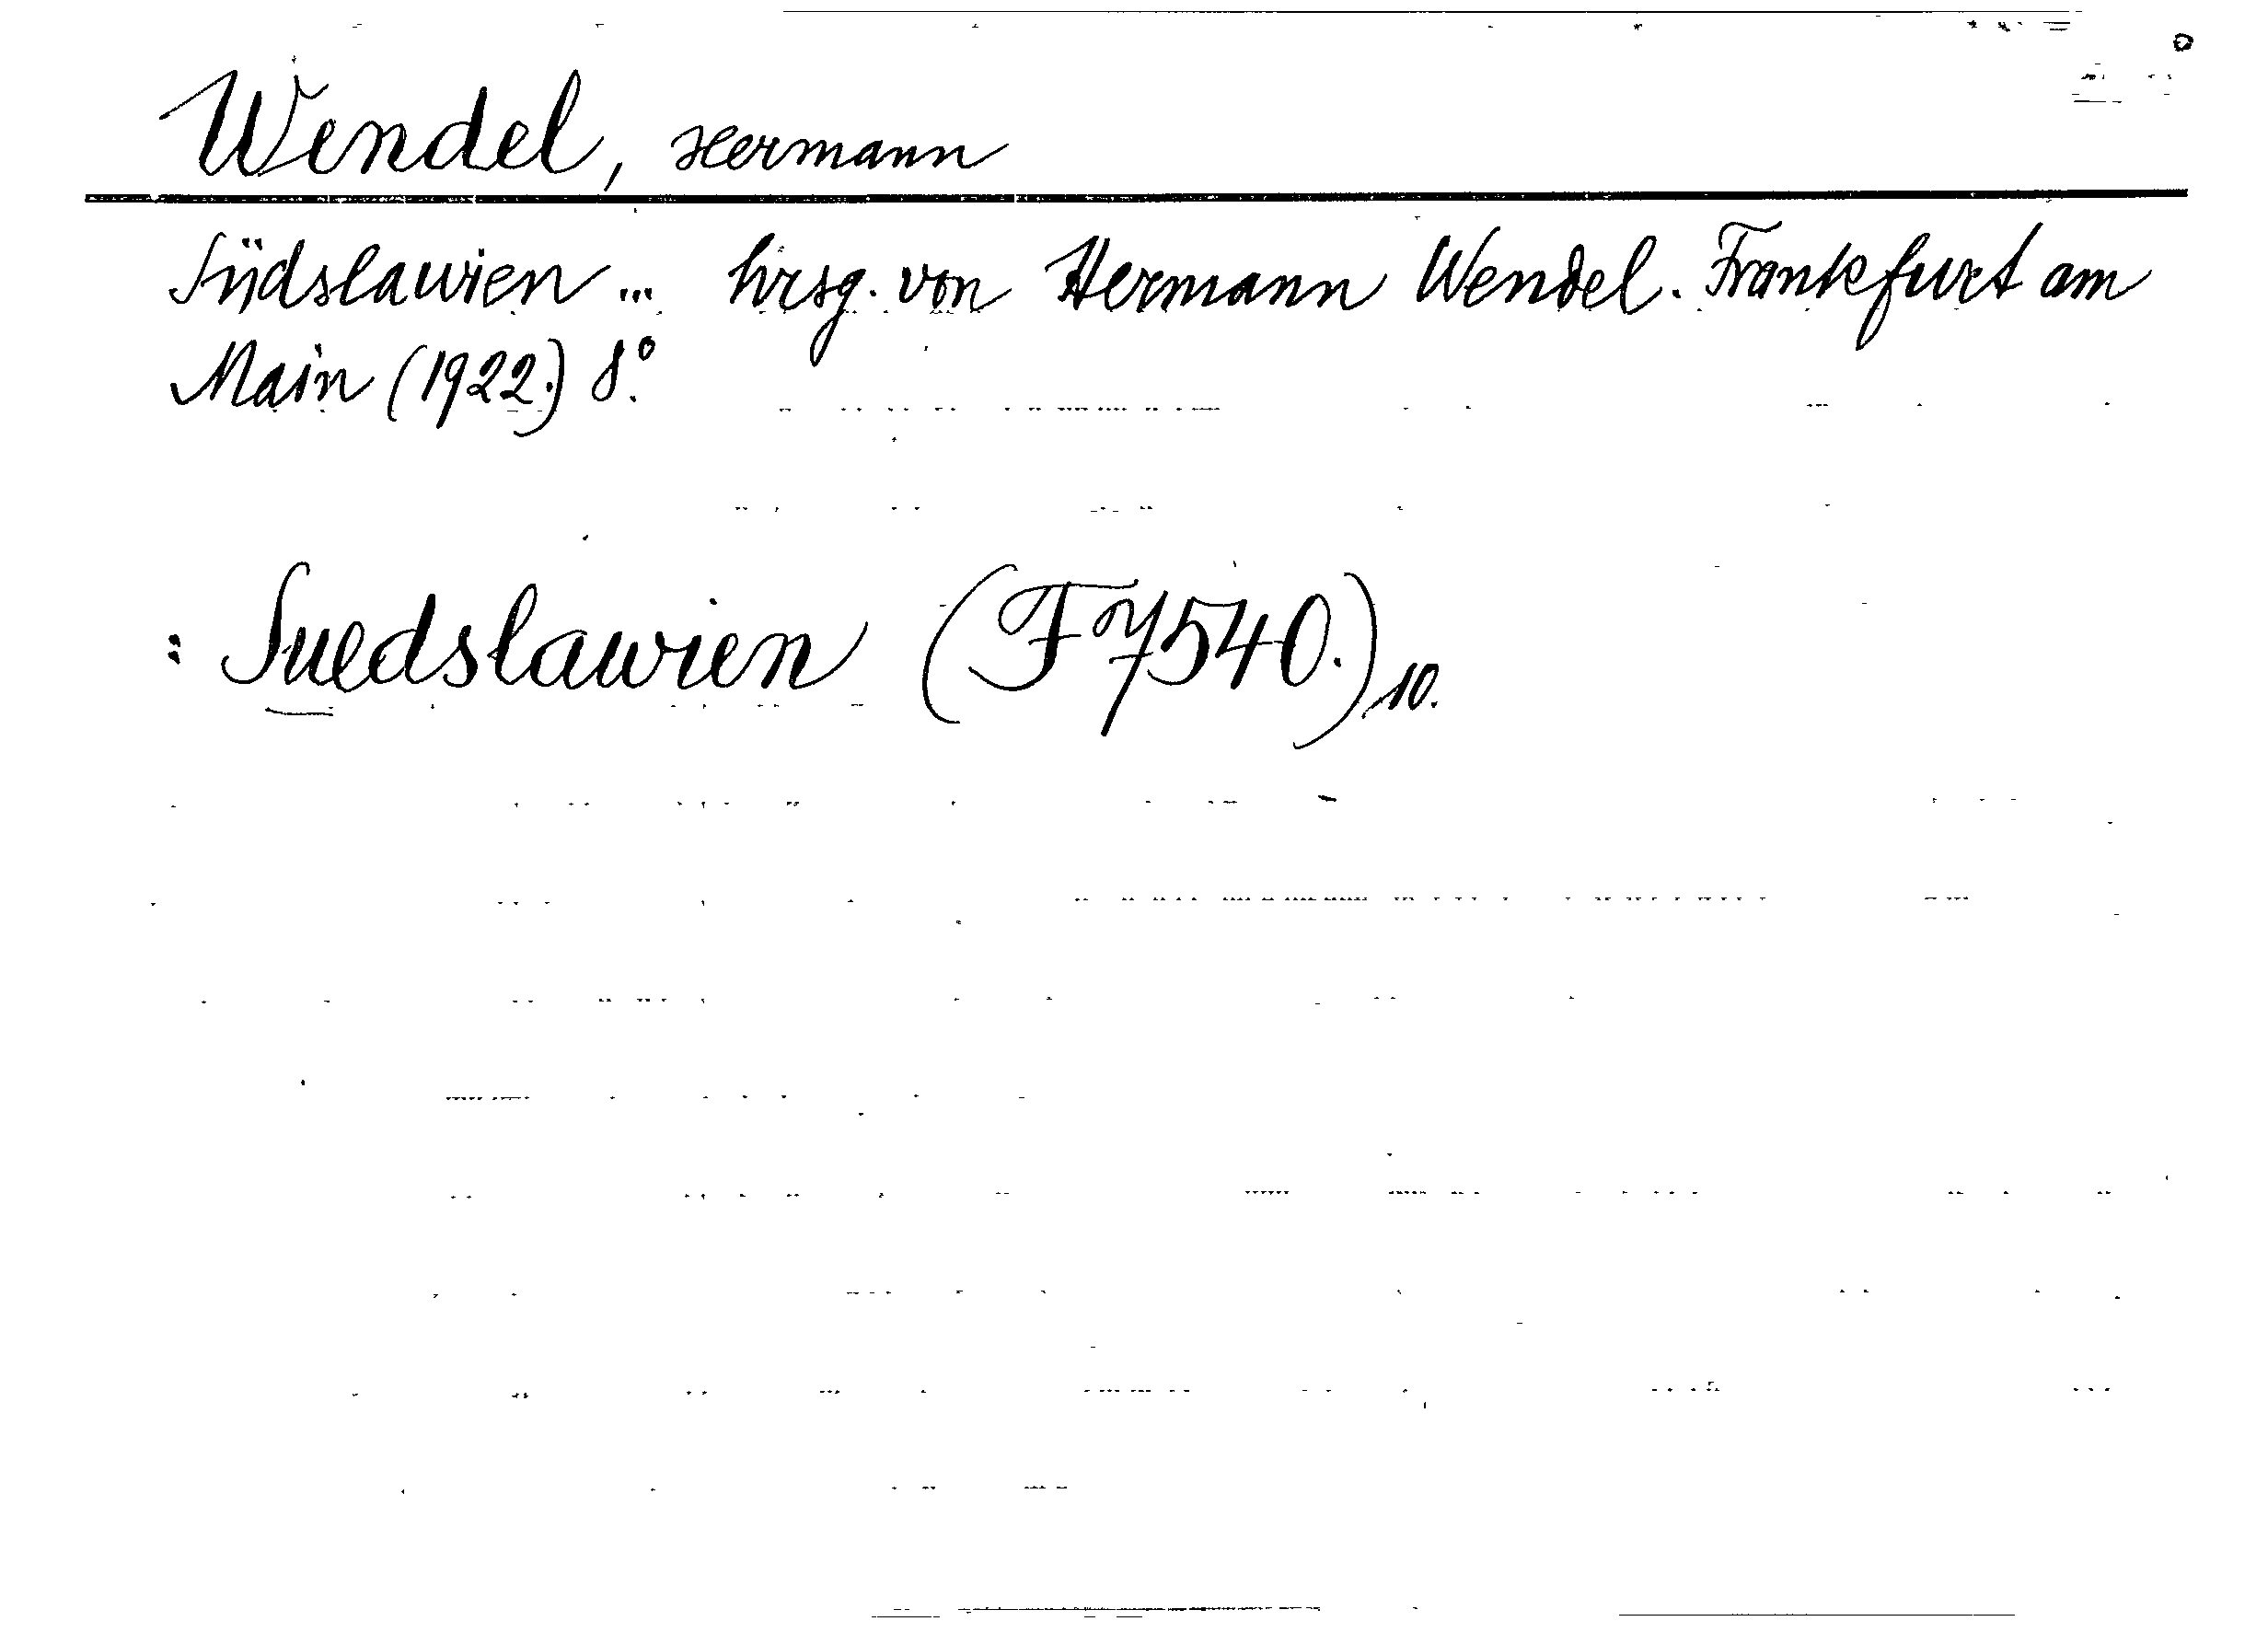 Wendel, Hermann
Südslawien ... hrsg. von Hermann Wendel. Frankfurt am
Main (1922.) 8°.
: Suedslawien (F 7540.) 10.